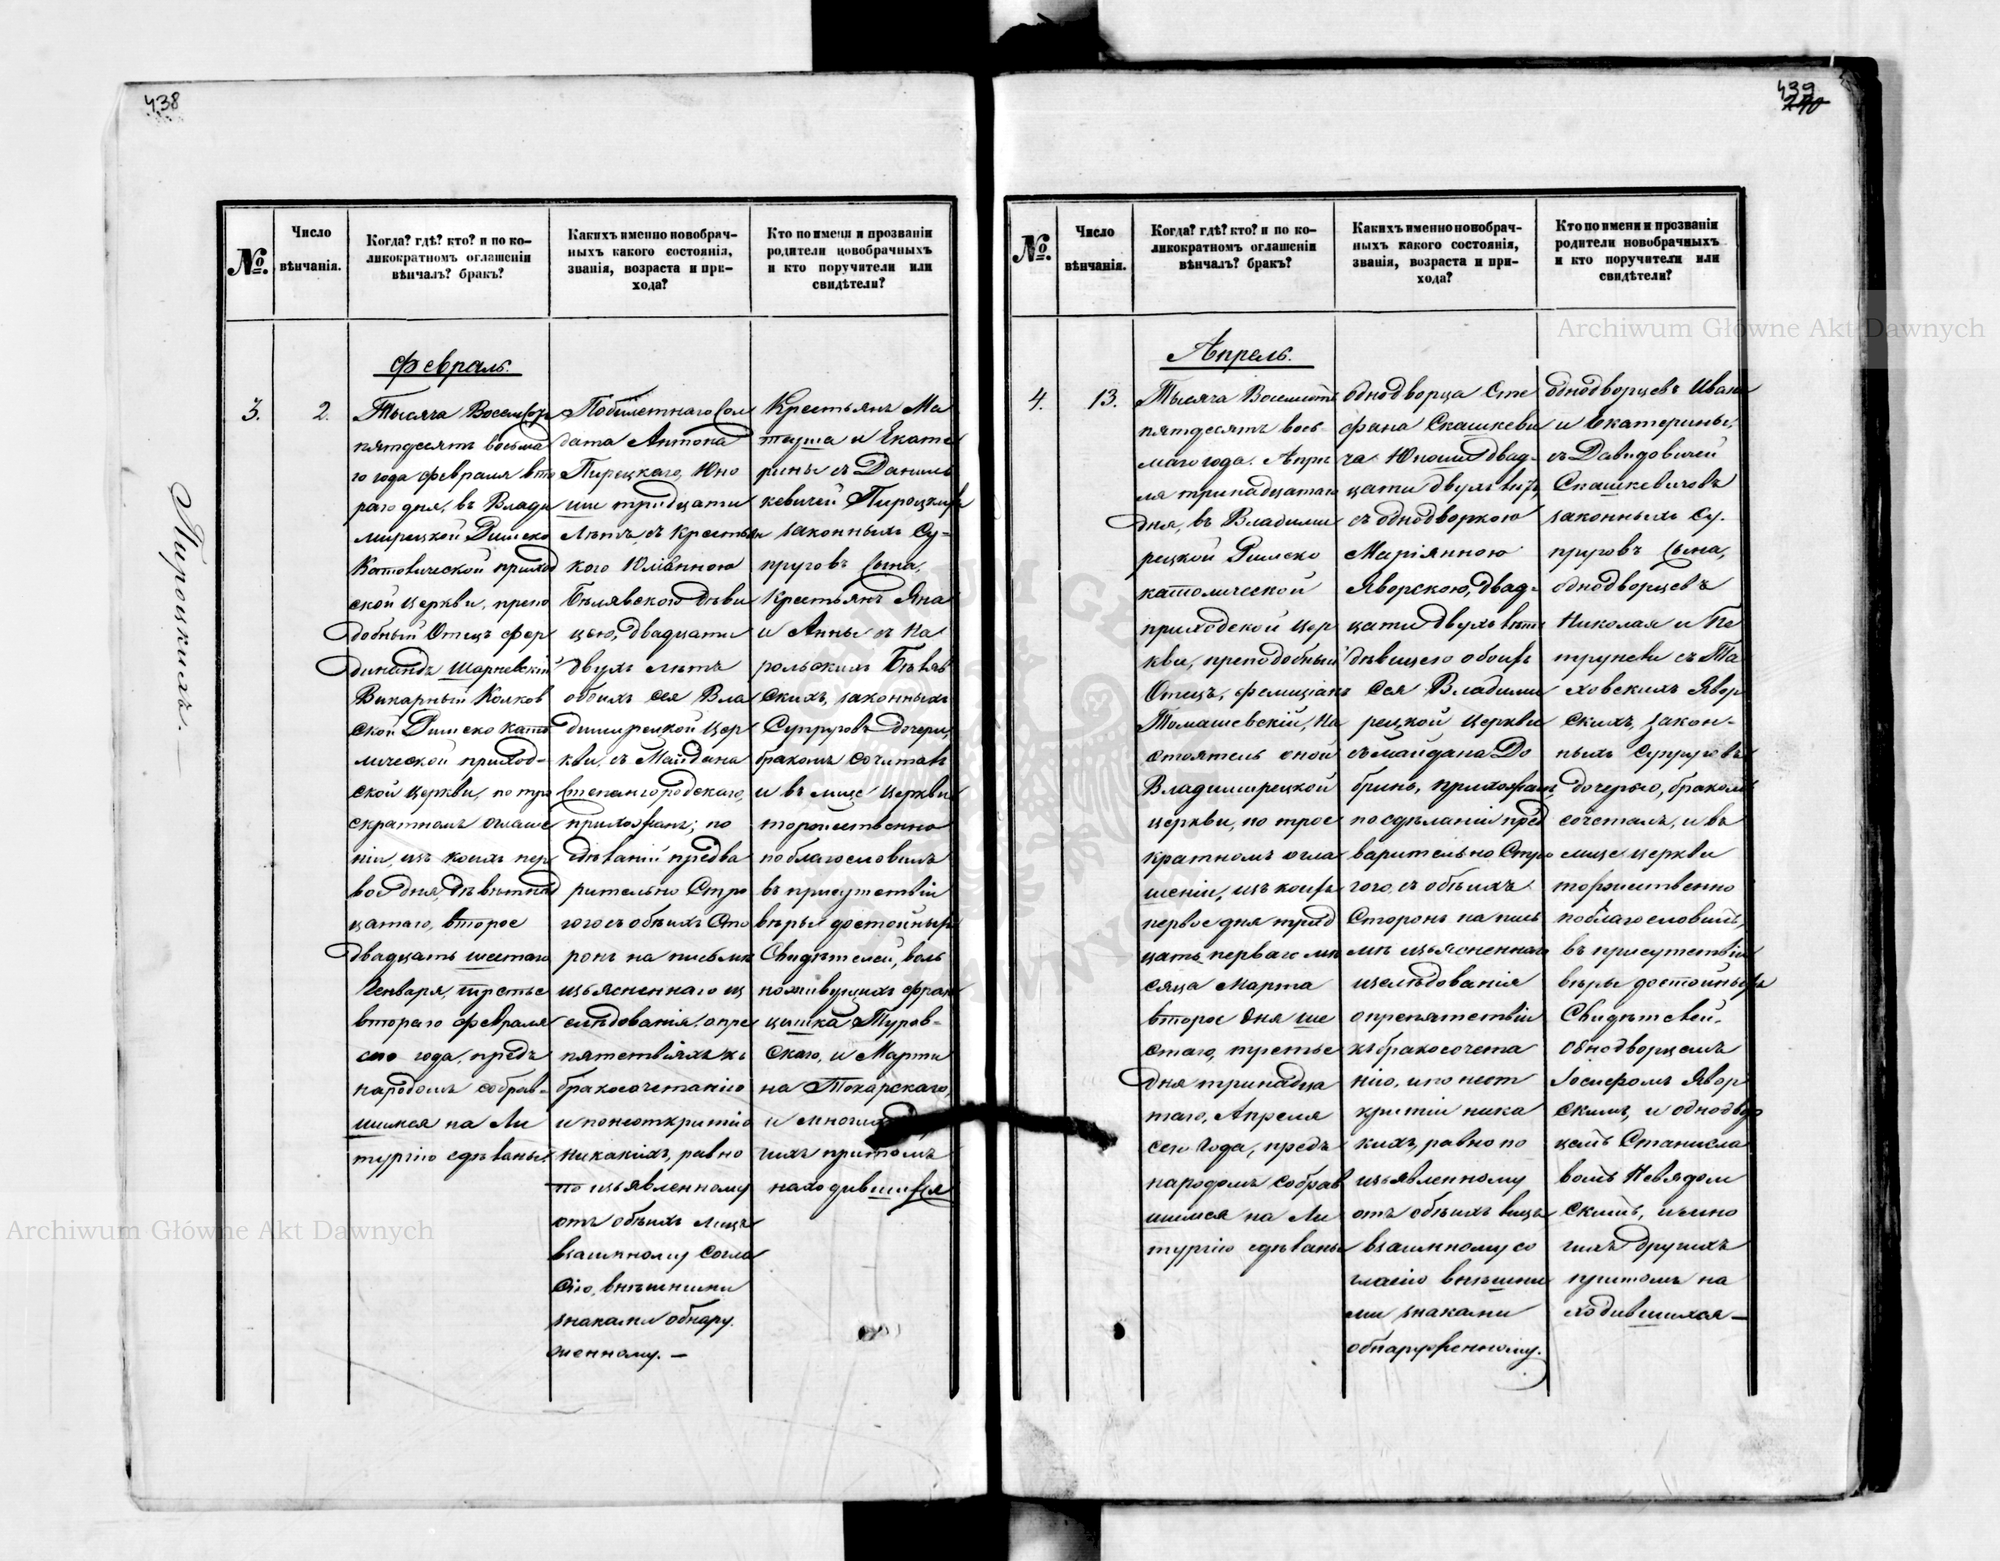 438
№.
Число
вѣнчанія.
Когда? гдѣ? кто? и по ко-
ликократномъ оглашеніи
вѣнчалъ? бракъ?
Какихъ именно новобрач-
ныхъ какого состоянія,
званія, возраста и при-
хода?
Кто по имени и прозванію
родители новобрачныхъ
и кто поручители или
свидѣтели?
Пироцкихъ. —
3.
2.
Февраль.
Тысяча Восемсотъ
пятдесятъ восьма
го года февраля вто
раго дня, въ Влади
мирецкой Римско
Католической приход
ской церкви, препо
добный Отецъ Фер
динандъ Шарневскій
Викарный Колков
ской Римско като
лической приход-
ской церкви, по тро
екратномъ оглаше
ніи, изъ коихъ пер
вое дня, девятнад
цатаго, второе
двадцать шестаго
Генваря, третье
втораго февраля
сего года, предъ
народомъ собрав-
шимся на Ли
тургію сдѣланыхъ
Побилетнаго Сол
дата Антона
Пироцкаго, Юно
ши тридцати
лѣтъ, съ Крестьян
кою Юліянною
Бѣлявскою дѣви
цею, двадцати
двухъ лѣтъ
обоихъ сея Вла
димирецкой Цер
кви, съ Майдана
Степангородскаго,
прихожанъ; по
сдѣланій предва
рительно Стро
гого съ обѣихъ Сто
ронъ на письмѣ
изъясненнаго из
слѣдованія, опре
пятствіяхъ къ
бракосочетанію
и понеоткритію
никакихъ, равно
по изъявленному
отъ обѣихъ лицъ
взаимному согла
сію, внѣшними
знаками обнару.
женному. —
Крестьянъ Ма
теуша и Екате
рины съ Даниль
кевичей Пироцкихъ
законныхъ Су-
пруговъ Сына,
Крестьянъ Яна
и Анны съ Ка
рольскихъ Бѣляв
скихъ, законныхъ
Супруговъ дочери,
бракомъ сочиталъ
и въ лице Церкви
торжественно
поблагословилъ
въ присутствіи
вѣры достойныхъ
Свидѣтелей, воль
ноживущихъ Фран
цишка Туров-
скаго, и Марти
на Токарскаго,
и многихъ
гихъ притомъ
находившихся
439
270
№.
Число
вѣнчанія.
Когда? гдѣ? кто? и по ко-
ликократномъ оглашеніи
вѣнчалъ? бракъ?
Какихъ именно новобрач-
ныхъ какого состоянія,
званія, возраста и при-
хода?
Кто по имени и прозванію
родители новобрачныхъ
и кто поручители или
свидѣтели?
4.
13.
Апрель.
Тысяча Восемсотъ
пятдесятъ вось-
маго года. Апре
ля тринадцатаго
дня, въ Владими
рецкой Римско
католической
приходской Цер
кви, преподобный
Отецъ, Фелиціанъ
Томашевскій, На
стоятель оной
Владимирецкой
церкви, по трое
кратномъ огла
шеніи, изъ коихъ
первое дня трид
цать перваго мѣ
сяца Марта
второе дня ше
стаго, третье
дня тринадца
таго, Апреля
сего года, предъ
народомъ собрав
шимся на Ли
тургію сдѣланы
однодворца Сте
фана Скашкеви
ча Юношу двад-
цати двухъ лѣтъ,
съ однодворкою
Маріянною
Яворскою, двад-
цати двухъ лѣтъ
дѣвицею обоихъ
сея Владими
рецкой церкви
съ майдана До
бринь, прихожанъ,
по сдѣланій пред
варительно Стро
гого, съ обѣихъ
Сторонъ на пись
мѣ изъясненнаго
изслѣдованія
опрепятствіи
къ бракосочета
нію, и по неот
критіи ника
кихъ, равно по
изъявленному
отъ обѣихъ лицъ
взаимному со
гласію внѣшни
ми знаками
обнаруженному.
однодворцевъ Ивана
и Екатерины,
съ Давидовичей
Скашкевичовъ
законныхъ Су.
пруговъ Сына,
однодворцевъ
Николая и Пе
трунели съ Та
ховскихъ Явор
скихъ, закон-
ныхъ Супруговъ
дочерью, бракомъ
сочеталъ, и въ
лице церкви
торжественно
поблагословилъ,
въ присутствіи
вѣры достойныхъ
Свидѣтелей.
Однодворцемъ
Іосифомъ Явор
скимъ, и однодвор
цемъ Станисла
вомъ Невядом
скимъ, и мно
гихъ другихъ
притомъ на
ходившихся —
Archiwum Główne Akt Dawnych
Archiwum Główne Akt Dawnych